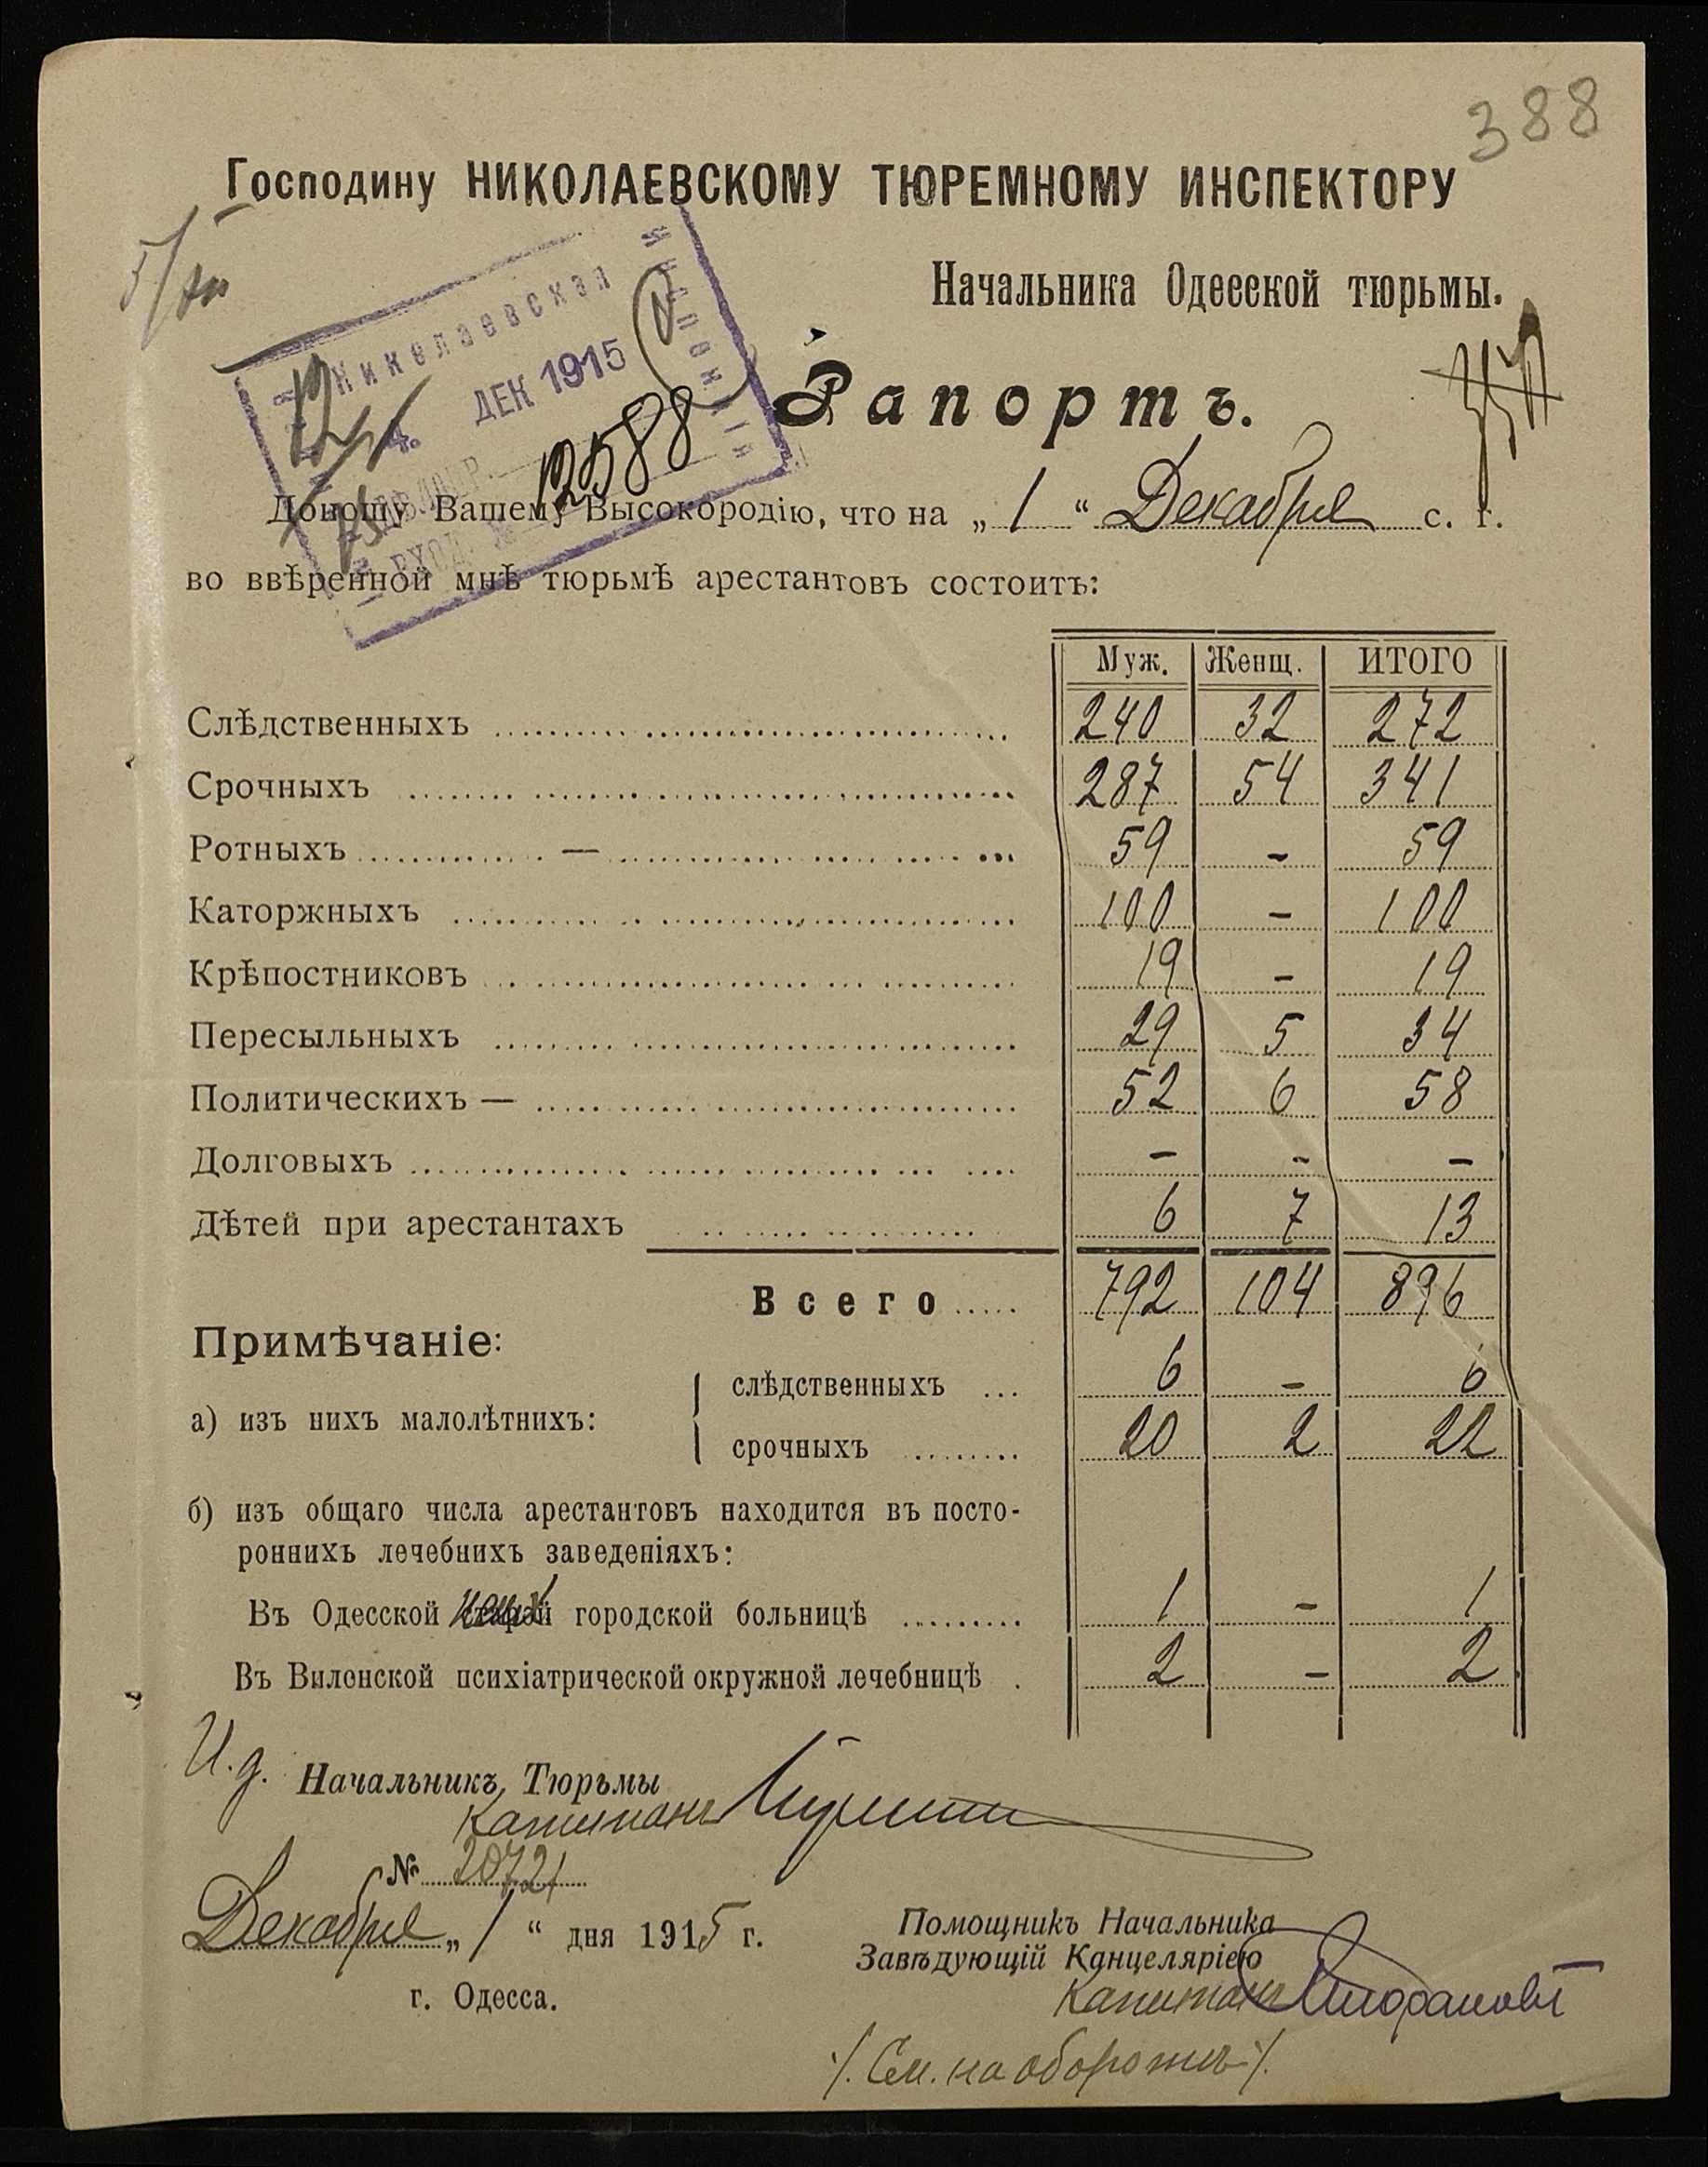 388
Господину НИКОЛАЕВСКОМУ ТЮРЕМНОМУ ИНСПЕКТОРУ
Начальника Одесской тюрьмы.
Николаевская
4. ДЕК 1915
ВХОД. № 12588
Рапортъ.
Доношу Вашему Высокородію, что на „ 1 “ Декабря с. г.
во ввѣренной мнѣ тюрьмѣ арестантовъ состоитъ:
Муж. Женщ. ИТОГО
Слѣдственныхъ 240 32 272
Срочныхъ 287 54 341
Ротныхъ — 59 - 59
Каторжныхъ 100 - 100
Крѣпостниковъ 19 - 19
Пересыльныхъ 29 5 34
Политическихъ — 52 6 58
Долговыхъ - - -
Дѣтей при арестантахъ 6 7 13
Всего 792 104 896
Примѣчаніе:
а) изъ нихъ малолѣтнихъ:
слѣдственныхъ 6 - 6
срочныхъ 20 2 22
б) изъ общаго числа арестантовъ находится въ посто-
роннихъ лечебнихъ заведеніяхъ:
Въ Одесской городской больницѣ 1 - 1
Въ Виленской психіатрической окружной лечебницѣ 2 - 2
И.д. Начальникъ Тюрьмы
Капитанъ
№ 20721
Декабря „ 1 “ дня 1915 г.
г. Одесса.
Помощникъ Начальника
Завѣдующій Канцеляріею
Капитанъ
/. См. на оборотѣ /.